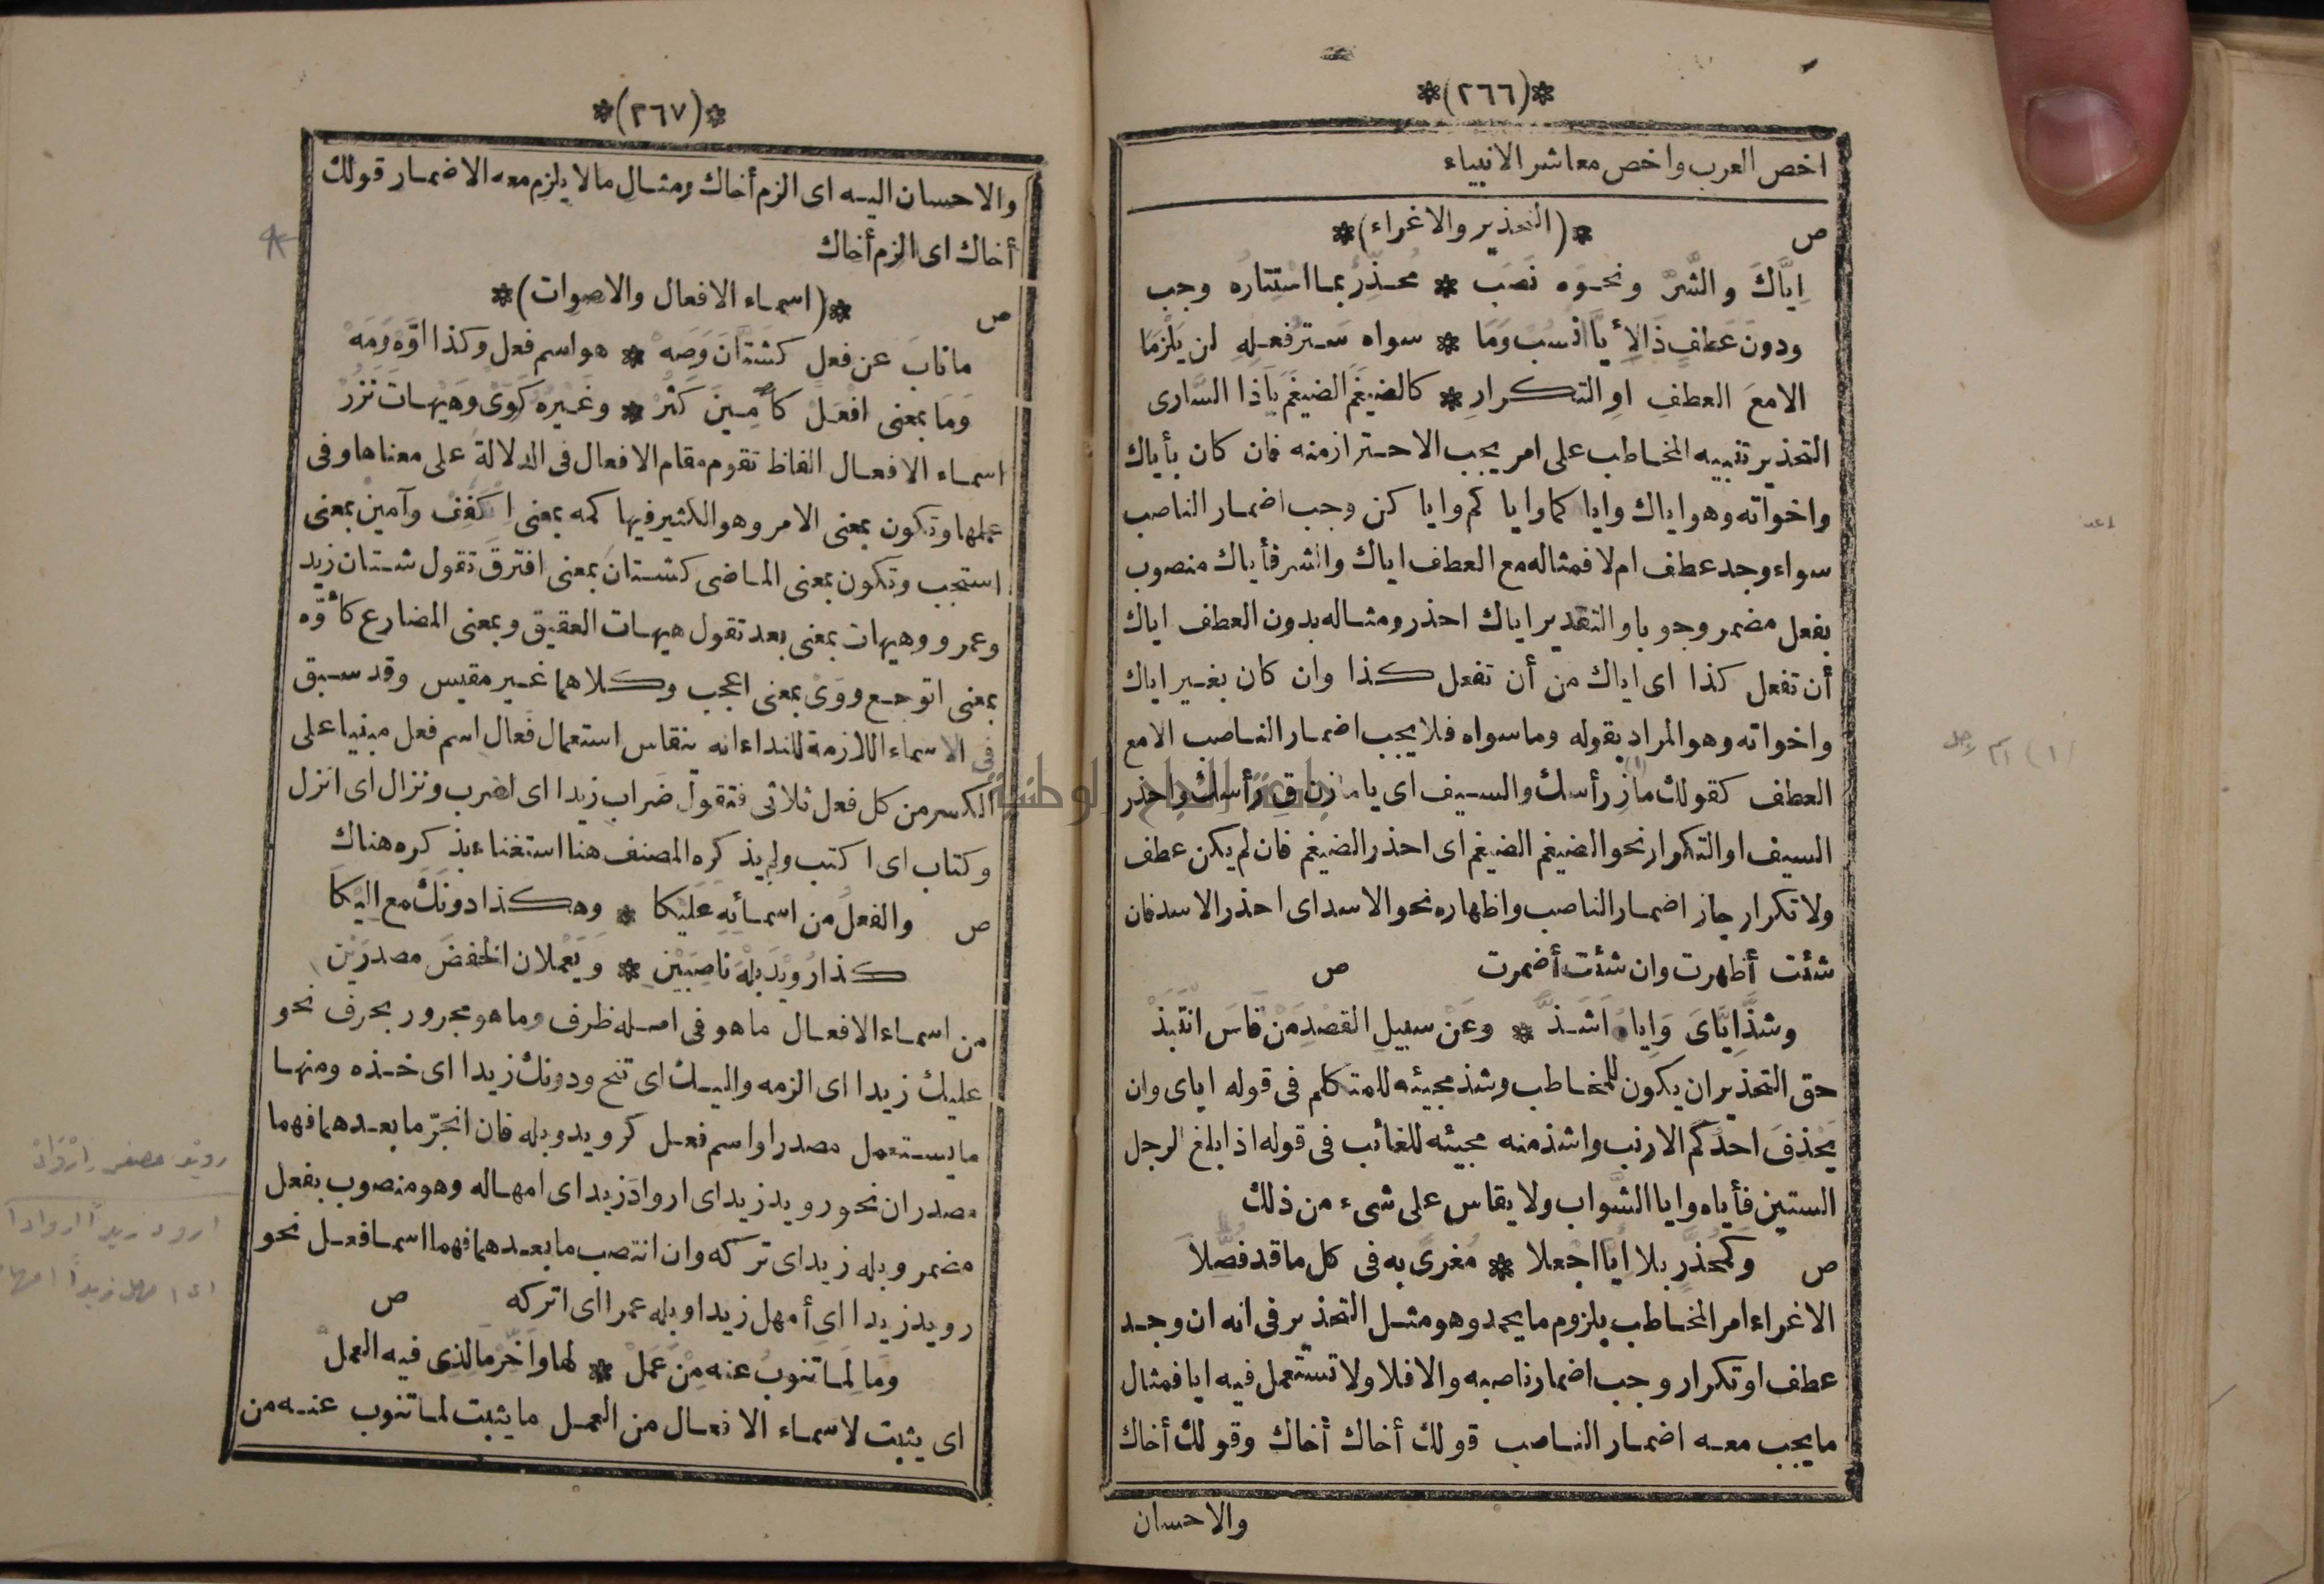 *(٢٦٦)*
اخص العرب واخص معاشر الانبياء
ص *(التحذير والاغراء)*
اِيَّاكَ والشَّرَّ ونحوَه نَصَبْ * مُحَذِّرٌ بما اسْتِتَارُه وجب
ودونَ عَطفٍ ذَا لِأيَّا انسُبْ وَمَا * سواه سَترُ فعلِهِ لن يَلْزَمَا
الا مَعَ العطفِ اوِ التكرارِ * كالضيغَمَ الضيغَمَ يَاذا السَّارى
التحذير تنبيه المخاطب على امر يجب الاحتراز منه فان كان بأياك
واخواته وهو اياك وايا كما وايا كم وايا كن وجب اضمار الناصب
سواء وجد عطف ام لا فمثاله مع العطف اياك والشر فأياك منصوب
بفعل مضمر وجوبا والتقدير اياك احذر ومثاله بدون العطف اياك
أن تفعل كذا اى اياك من أن تفعل كذا وان كان بغير اياك
واخواته وهو المراد بقوله وما سواه فلا يجب اضمار الناصب الا مع
العطف كقولك مازِ رأسك والسيف اى يا مازن قِ رأسك واحذر
السيف او التكرار نحو الضيغم الضيغم اى احذر الضيغم فان لم يكن عطف
ولا تكرار جاز اضمار الناصب واظهاره نحو الاسد اى احذر الاسد فان
شئت أظهرت وان شئت أضمرت ص
وشذَّ اِيَّاىَ وَاِياهُ اَشَذُّ * وعَنْ سبيلِ القصْدِ مَنْ قَاسَ انْتَبَذْ
حق التحذير ان يكون للمخاطب وشذ مجيئه للمتكلم فى قوله اياى وان
يَحْذفَ احدُكم الارنب واشذ منه مجيئه للغائب فى قوله اذا بلغ الرجل
الستين فأياه وايا الشَّواب ولا يقاس على شىء من ذلك
ص وَكَمُحَذَّرٍ بلا ايَّا اجْعلا * مُغرىً به فى كل ما قد فُصِّلاَ
الاغراء امر المخاطب بلزوم ما يحمد وهو مثل التحذير فى انه ان وجد
عطف او تكرار وجب اضمار ناصبه والا فلا ولا تستعمل فيه ايا فمثال
ما يجب معه اضمار الناصب قولك أخاك أخاك وقولك أخاك
والاحسان
(١) اسم رجل
*(٢٦٧)*
والاحسان اليه اى الزم أخاك ومثال ما لا يلزم معه الاضمار قولك
أخاك اى الزم أخاك
ص *(اسماء الافعال والاصوات)*
ما نابَ عن فعلٍ كشَتَّانَ وَصَهْ * هو اسم فعل وكذا اوَّهْ وَمَهْ
وَمَا بمعنى افعَلْ كآمِينَ كَثُرْ * وغَيْرُه كَوَىْ وَهَيْهاتَ نَزُرْ
اسماء الافعال الفاظ تقوم مقام الافعال فى الدلالة على معناها وفى
عملها وتكون بمعنى الامر وهو الكثير فيها كمه بمعنى اكفف وآمين بمعنى
استجب وتكون بمعنى الماضى كشتان بمعنى افترق تقول شتان زيد
وعمرو وهيهات بمعنى بعد تقول هيهات العقيق وبمعنى المضارع كأوَّه
بمعنى اتوجع ووَىْ بمعنى اعجب وكلاهما غير مقيس وقد سبق
فى الاسماء اللازمة للنداء انه ينقاس استعمال فَعال اسم فعل مبنيا على
الكسر من كل فعل ثلاثى فتقول ضَراب زيدا اى اضرب ونزال اى انزل
وكتاب اى اكتب ولم يذكره المصنف هنا استغناء بذكره هناك
ص والفعلُ من اسمائِهِ عَلَيْكا * وهكذا دونَكَ مع اِلَيْكَا
كذا رُوَيْدَ بَلْهَ ناصِبَيْنِ * وَيَعْملانِ الخفضَ مصدرَيْنِ
من اسماء الافعال ما هو فى اصله ظرف وما هو مجرور بحرف نحو
عليك زيدا اى الزمه واليك اى تنح ودونك زيدا اى خذه ومنها
ما يستعمل مصدرا واسم فعل كرويد وبله فان انجرّ ما بعدهما فهما
مصدران نحو رويد زيد اى اروادَ زيد اى امهاله وهو منصوب بفعل
مضمر وبله زيد اى تركه وان انتصب ما بعدهما فهما اسما فعل نحو
رويد زيدا اى أمهل زيدا وبله عمرا اى اتركه ص
وَما لِمَا تنوبُ عنه مِنْ عَمَلْ * لها وَاَخّرْ ما لِذِى فيه العمل
اى يثبت لاسماء الافعال من العمل ما يثبت لما تنوب عنه من
رويد مصغر إِرْوَادْ
ارود زيدًا اروادا
جامعة النجاح الوطنية